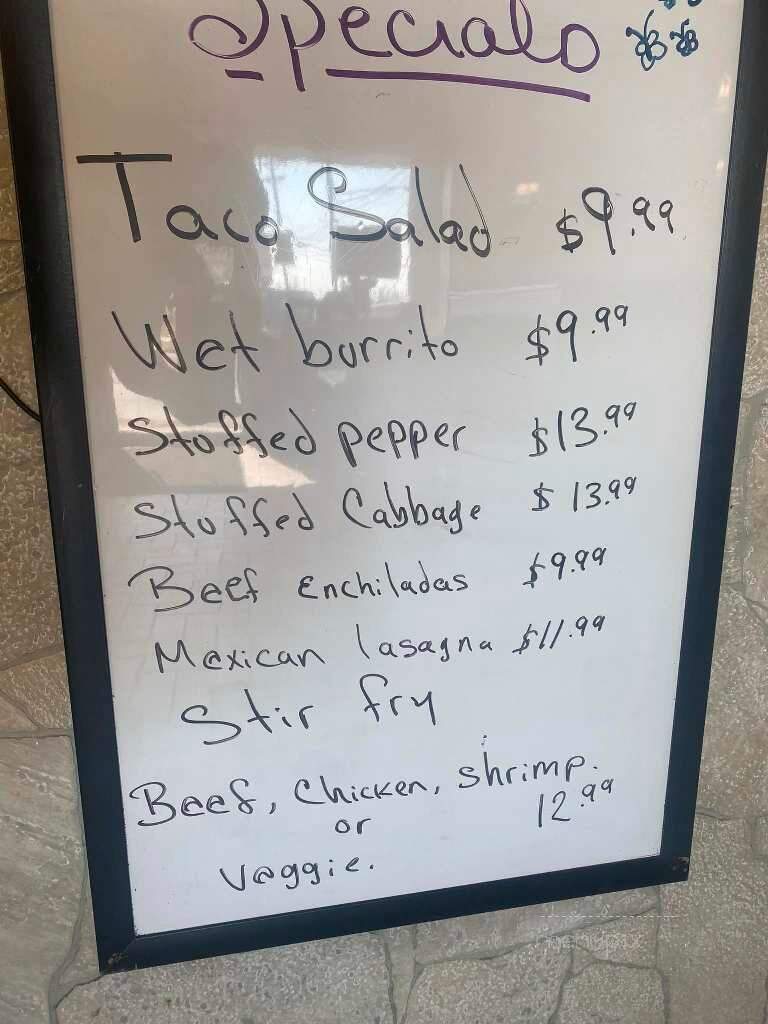 Specials
Taco Salad $9.99
Wet burrito $9.99
Stuffed pepper $13.99
Stuffed Cabbage $13.99
Beef Enchiladas $9.99
Mexican lasagna $11.99
Stir fry
Beef, Chicken, shrimp.
or 12.99
Veggie.